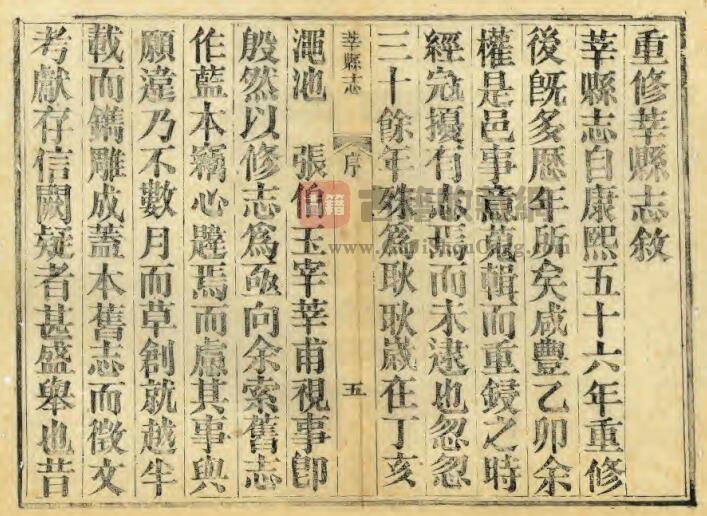 重修莘縣志敘
莘縣志自康熙五十六年重修
後旣多歷年所矣咸豐乙卯余
權是邑事意蒐輯而重鋟之時
經寇擾有志焉而未逮也忽忽
三十餘年殊爲耿耿歲在丁亥
莘縣志 序 五
澠池 張伯玉宰莘甫視事卽
殷然以修志爲亟向余索舊志
作藍本竊心韙焉而慮其事與
願違乃不數月而草創就越半
載而鐫雕成蓋本舊志而徵文
考獻存信闕疑者甚盛舉也昔
古籍
www.gujishougang.com